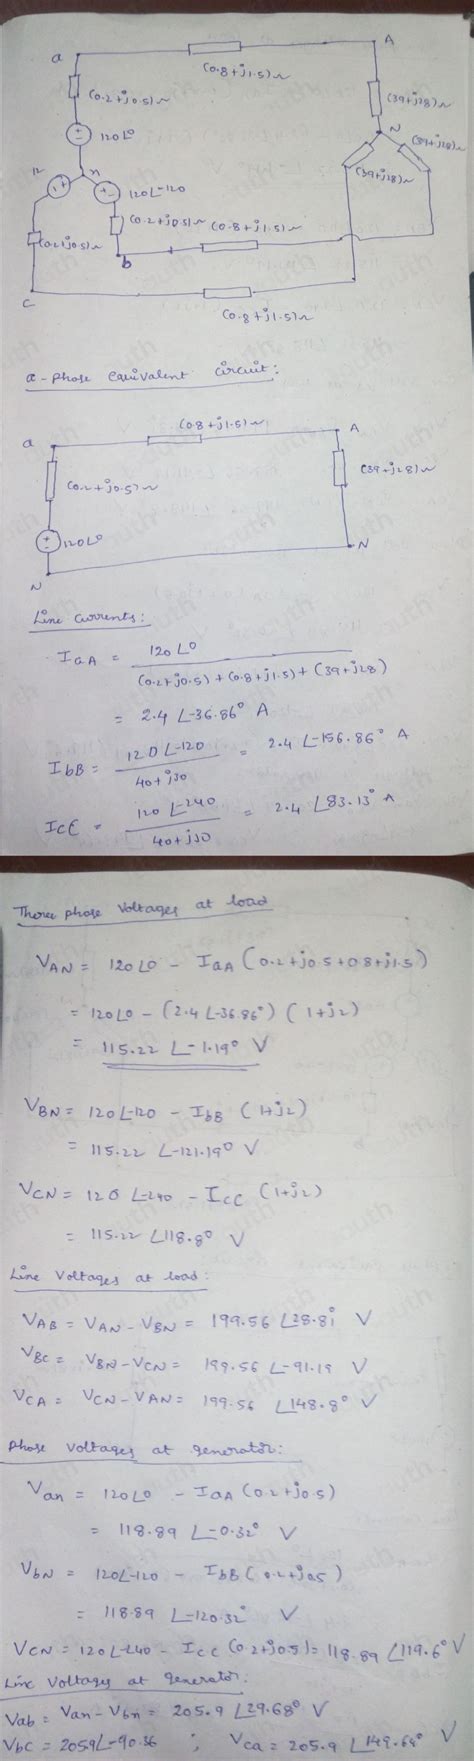 a
(0.8+j1.5)~
A
(0.2+j0.5)~
(39+j28)~
120∠0
N
(39+j28)~
(39+j28)~
12
n
120∠-120
(0.2+j0.5)~
(0.2+j0.5)~
(0.8+j1.5)~
b
c
(0.8+j1.5)~
a-phase equivalent circuit:
(0.8+j1.5)~
a
A
(0.2+j0.5)~
(39+j28)~
120∠0
N
N
Line currents:
IaA = 120∠0 / (0.2+j0.5)+(0.8+j1.5)+(39+j28)
= 2.4∠-36.86° A
IbB = 120∠-120 / 40+j30 = 2.4∠-156.86° A
IcC = 120∠-240 / 40+j30 = 2.4∠83.13° A
Three phase voltages at load
VAN = 120∠0 - IaA (0.2+j0.5+0.8+j1.5)
= 120∠0 - (2.4∠-36.86°) (1+j2)
= 115.22∠-1.19° V
VBN = 120∠-120 - IbB (1+j2)
= 115.22∠-121.19° V
VCN = 120∠-240 - ICC (1+j2)
= 115.22∠118.8° V
Line Voltages at load:
VAB = VAN - VBN = 199.56∠28.81 V
VBC = VBN - VCN = 199.56∠-91.19 V
VCA = VCN - VAN = 199.56∠148.8° V
Phase voltages at generator:
Van = 120∠0 - IaA (0.2+j0.5)
= 118.89∠-0.32° V
VbN = 120∠-120 - IbB (0.2+j0.5)
= 118.89∠-120.32° V
VCN = 120∠-240 - ICC (0.2+j0.5) = 118.89∠119.6° V
Line Voltages at generator:
Vab = Van - Vbn = 205.9∠29.68° V
Vbc = 205.9∠-90.36 ; Vca = 205.9∠149.68° V